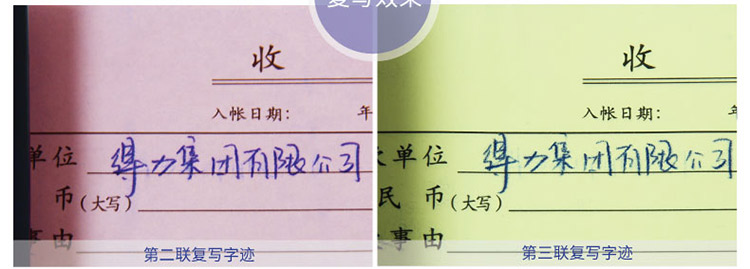 复写效果
收
入帐日期: 年
单位 得力集团有限公司
币(大写)
事由
第二联复写字迹
收
入帐日期: 年
单位 得力集团有限公司
民币(大写)
事由
第三联复写字迹